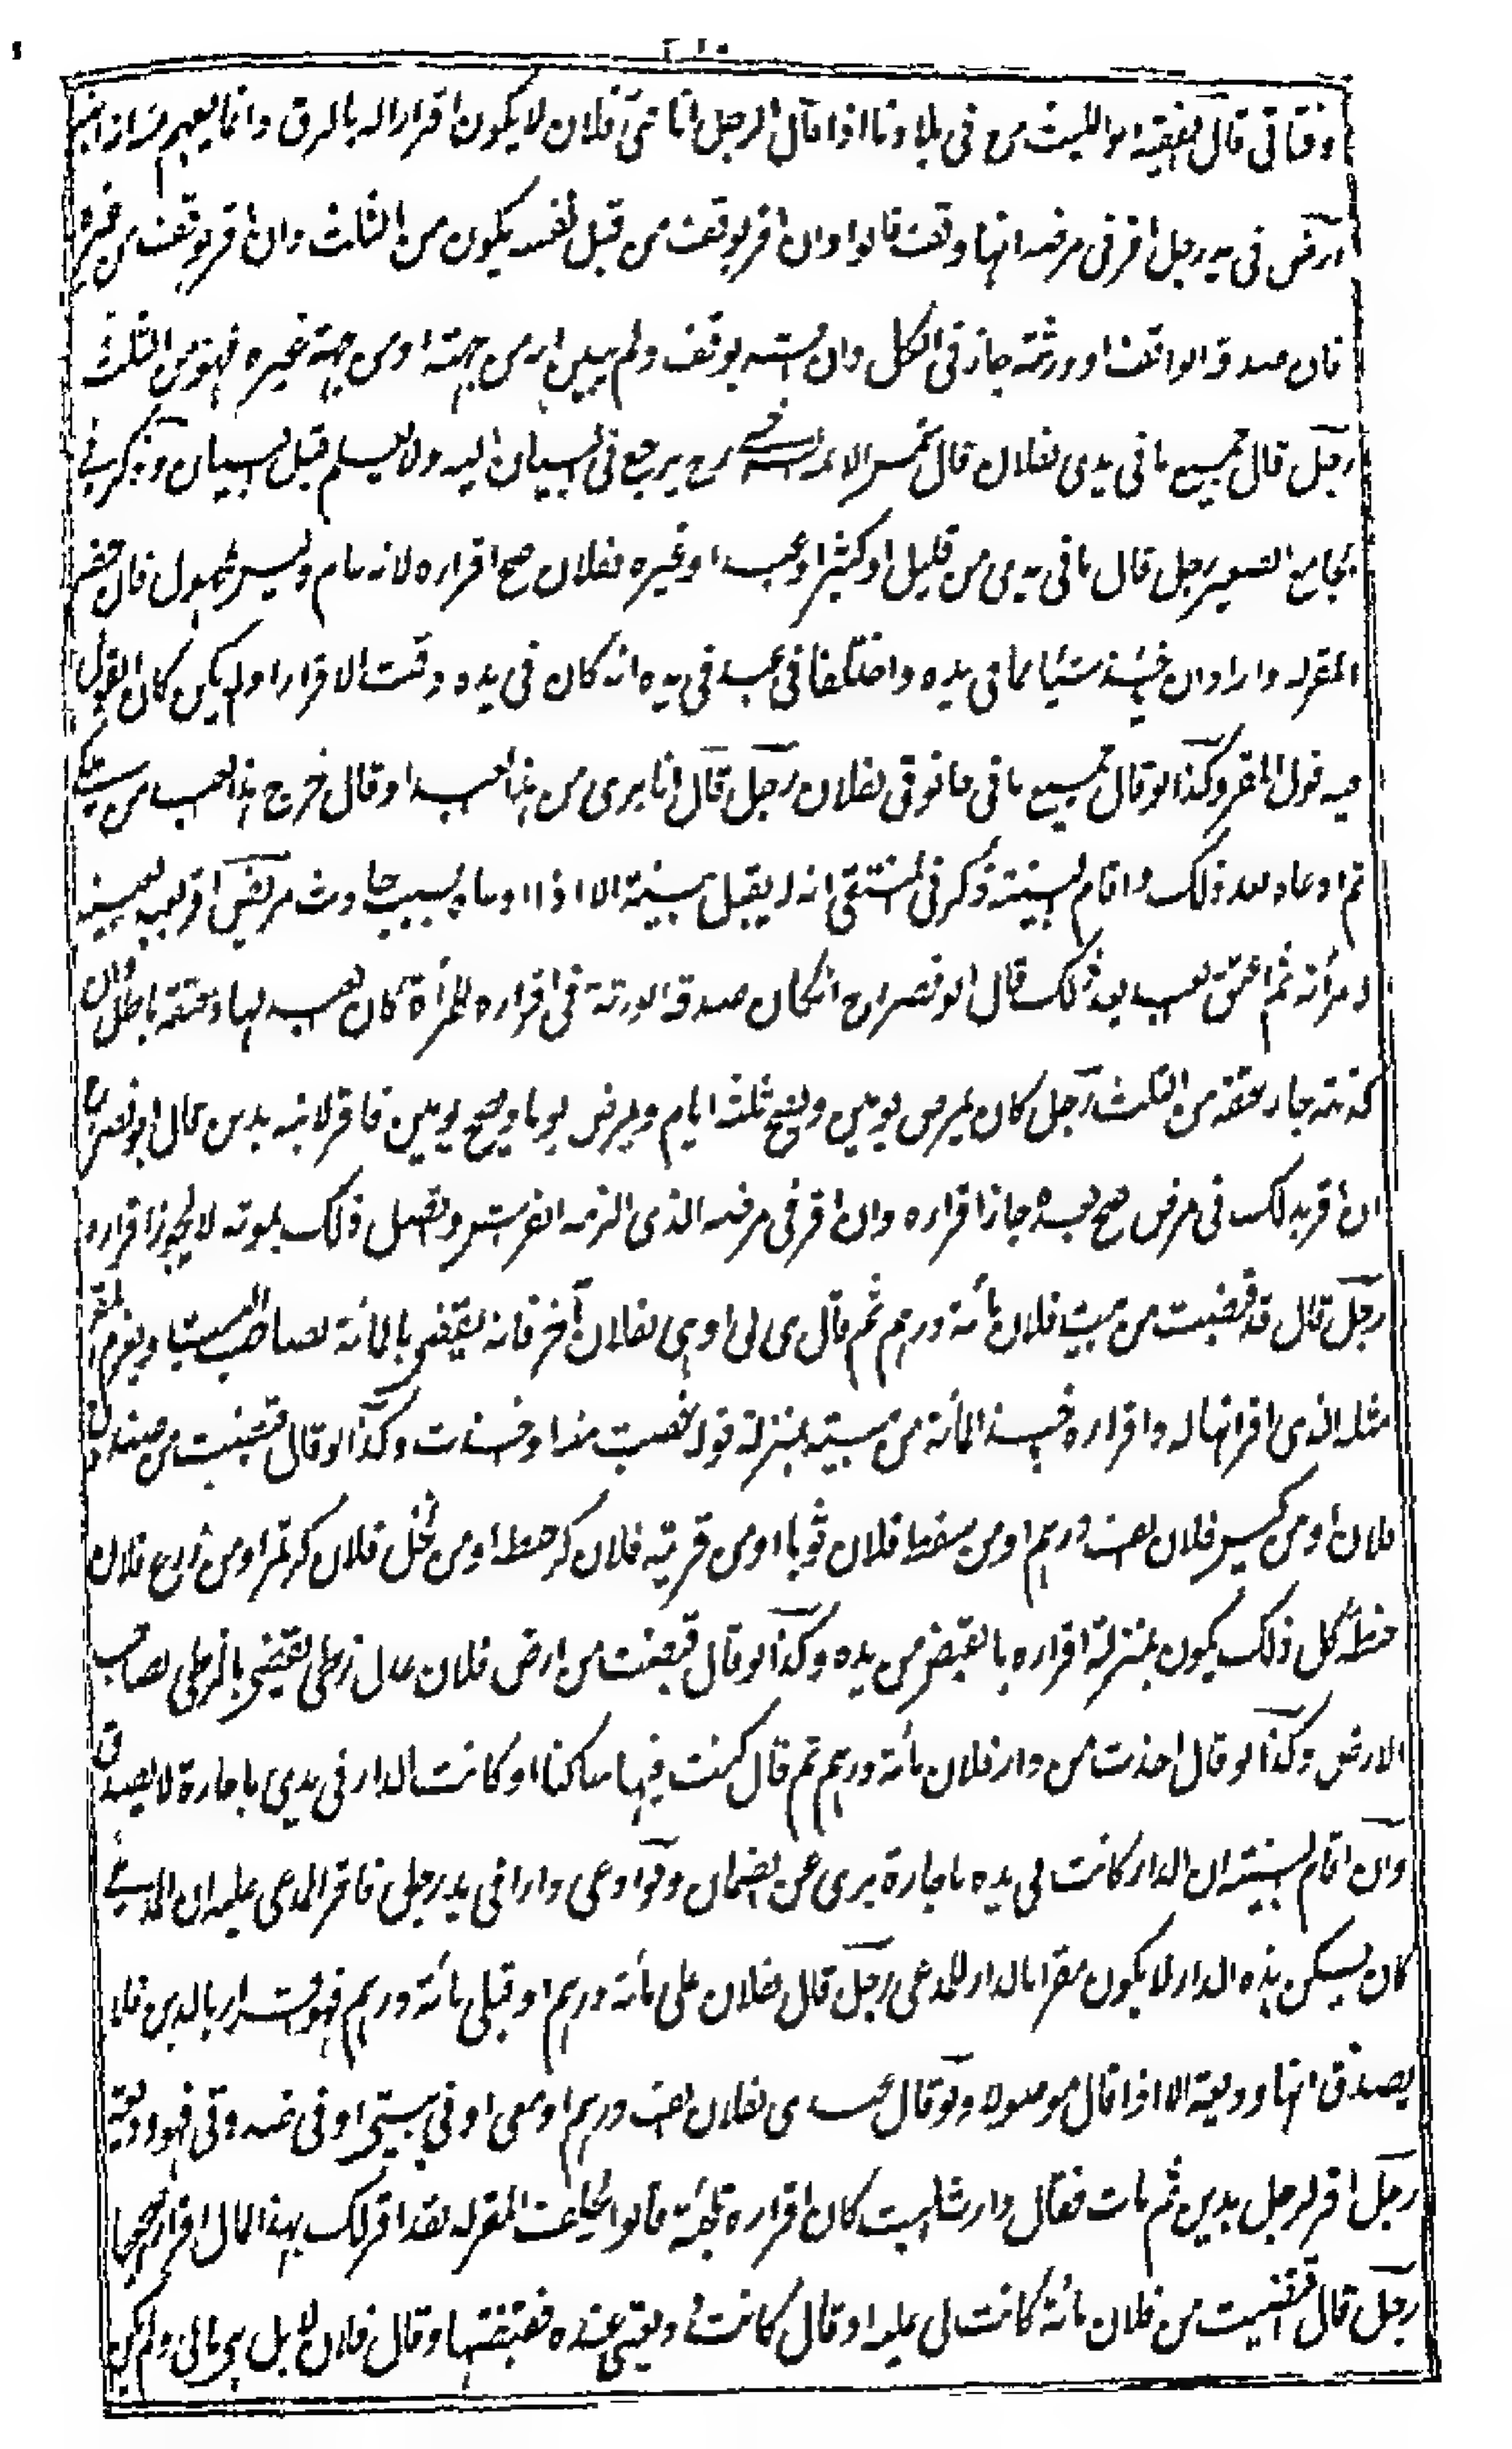 ٢١٠
وفتاتي قال الفقيه ابو الليث رح في بلادنا اذا قال الرجل انا فتى فلان لا يكون اقرارا له بالرق وانما يفهم منه انه
ارض في يد رجل اقر في مرضه انها وقف قالوا وان اقر بوقف من قبل نفسه يكون من الثلث وان اقر بوقف من غيره
فان صدقه الواقف او ورثته جاز في الكل وان اقر بوقف ولم يبين انه من جهته او من جهة غيره فهو من الثلث
رجل قال جميع ما في يدي لفلان قال شمس الائمة السرخسي رح يرجع في البيان اليه ولا يعلم قبل البيان وذكر في
الجامع الصغير رجل قال ما في يدي من قليل او كثير او عبد او غيره لفلان صح اقراره لانه عام وليس بمجهول فان حضر
المقر له واراد ان ياخذ شيئا مما في يده واختلفا في عبد في يده انه كان في يده وقت الاقرار او لم يكن كان القول
فيه قول المقر وكذا لو قال جميع ما في حانوتي لفلان رجل قال انا بري من هذا العبد او قال خرج هذا العبد من ملكي
ثم ادعاه بعد ذلك واقام البينة ذكر في المنتقى انه لا يقبل بينته الا اذا ادعاه بسبب حادث مريض اقر بعبد بعينه
لامرأته ثم اعتق العبد بعد ذلك قال ابو نصر رح ان كان صدقه الورثة في اقراره للمرأة كان العبد لها وعتقه باطل وان
كذبته جاز عتقه من الثلث رجل كان يمرض يومين ويصح ثلثة ايام ويمرض يوما ويصح يومين فاقر لابنه بدين قال ابو نصر رح
ان اقر بذلك في مرض صح بعده جاز اقراره وان اقر في مرضه الذي الزمه الفراش واتصل ذلك بموته لا يجوز اقراره
رجل قال قد قبضت من بيت فلان مأة درهم ثم قال هي لي او هي لفلان آخر فانه يقضى بالمأة لصاحب البيت ويغرم المقر
مثله للذي اقر انها له واقراره بقبض المأة من بيته بمنزلة قوله غصبت منه او اخذت وكذا لو قال قبضت من صندوق
فلان او من كيس فلان الف درهم او من سفط فلان ثوبا او من قرية فلان كر حنطة او من نخل فلان كر تمر او من زرع فلان
حنطة كل ذلك يكون بمنزلة اقراره بالقبض من يده وكذا لو قال قبضت من ارض فلان عدل زطي يقضى بالزطي لصاحب
الارض وكذا لو قال اخذت من دار فلان مأة درهم ثم قال كنت فيها ساكنا او كانت الدار في يدي باجارة لا يصدق
وان اقام البينة ان الدار كانت في يده باجارة بري عن الضمان ولو ادعى دارا في يد رجل فاقر المدعى عليه ان المدعي
كان يسكن هذه الدار لا يكون مقرا بالدار للمدعي رجل قال لفلان علي مأة درهم او قبلي مأة درهم فهو اقرار بالدين فلا
يصدق انها وديعة الا اذا قال موصولا ولو قال عندي لفلان الف درهم او معي او في بيتي او في صندوقي فهو وديعة
رجل اقر لرجل بدين ثم مات فقال وارث الميت كان اقراره تلجئة قالوا يحلف المقر له لقد اقر لك بهذا المال اقرارا صحيحا
رجل قال قبضت من فلان مأة كانت لي عليه او قال كانت وديعتي عنده فقبضتها وقال فلان لا بل هي مالي ولم يكن